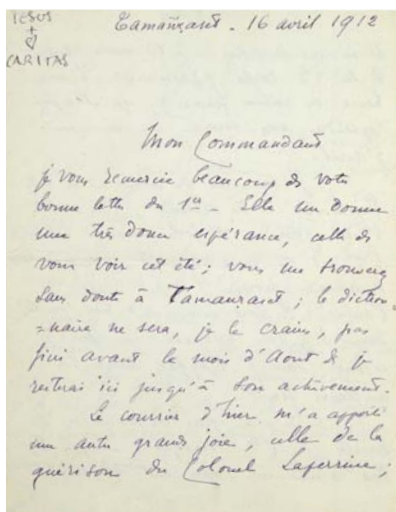 JESUS
+
♡
CARITAS
Tamanrasset - 16 avril 1912
Mon Commandant
je vous remercie beaucoup de votre
bonne lettre du 1er - Elle me donne
une très douce espérance, celle de
vous voir cet été ; vous me trouverez
sans doute à Tamanrasset ; le diction-
=naire ne sera, je le crains, pas
fini avant le mois d'Août & je
resterai ici jusqu'à son achèvement.
Le courrier d'hier m'a apporté
une autre grande joie, celle de la
guérison du Colonel Laperrine ;